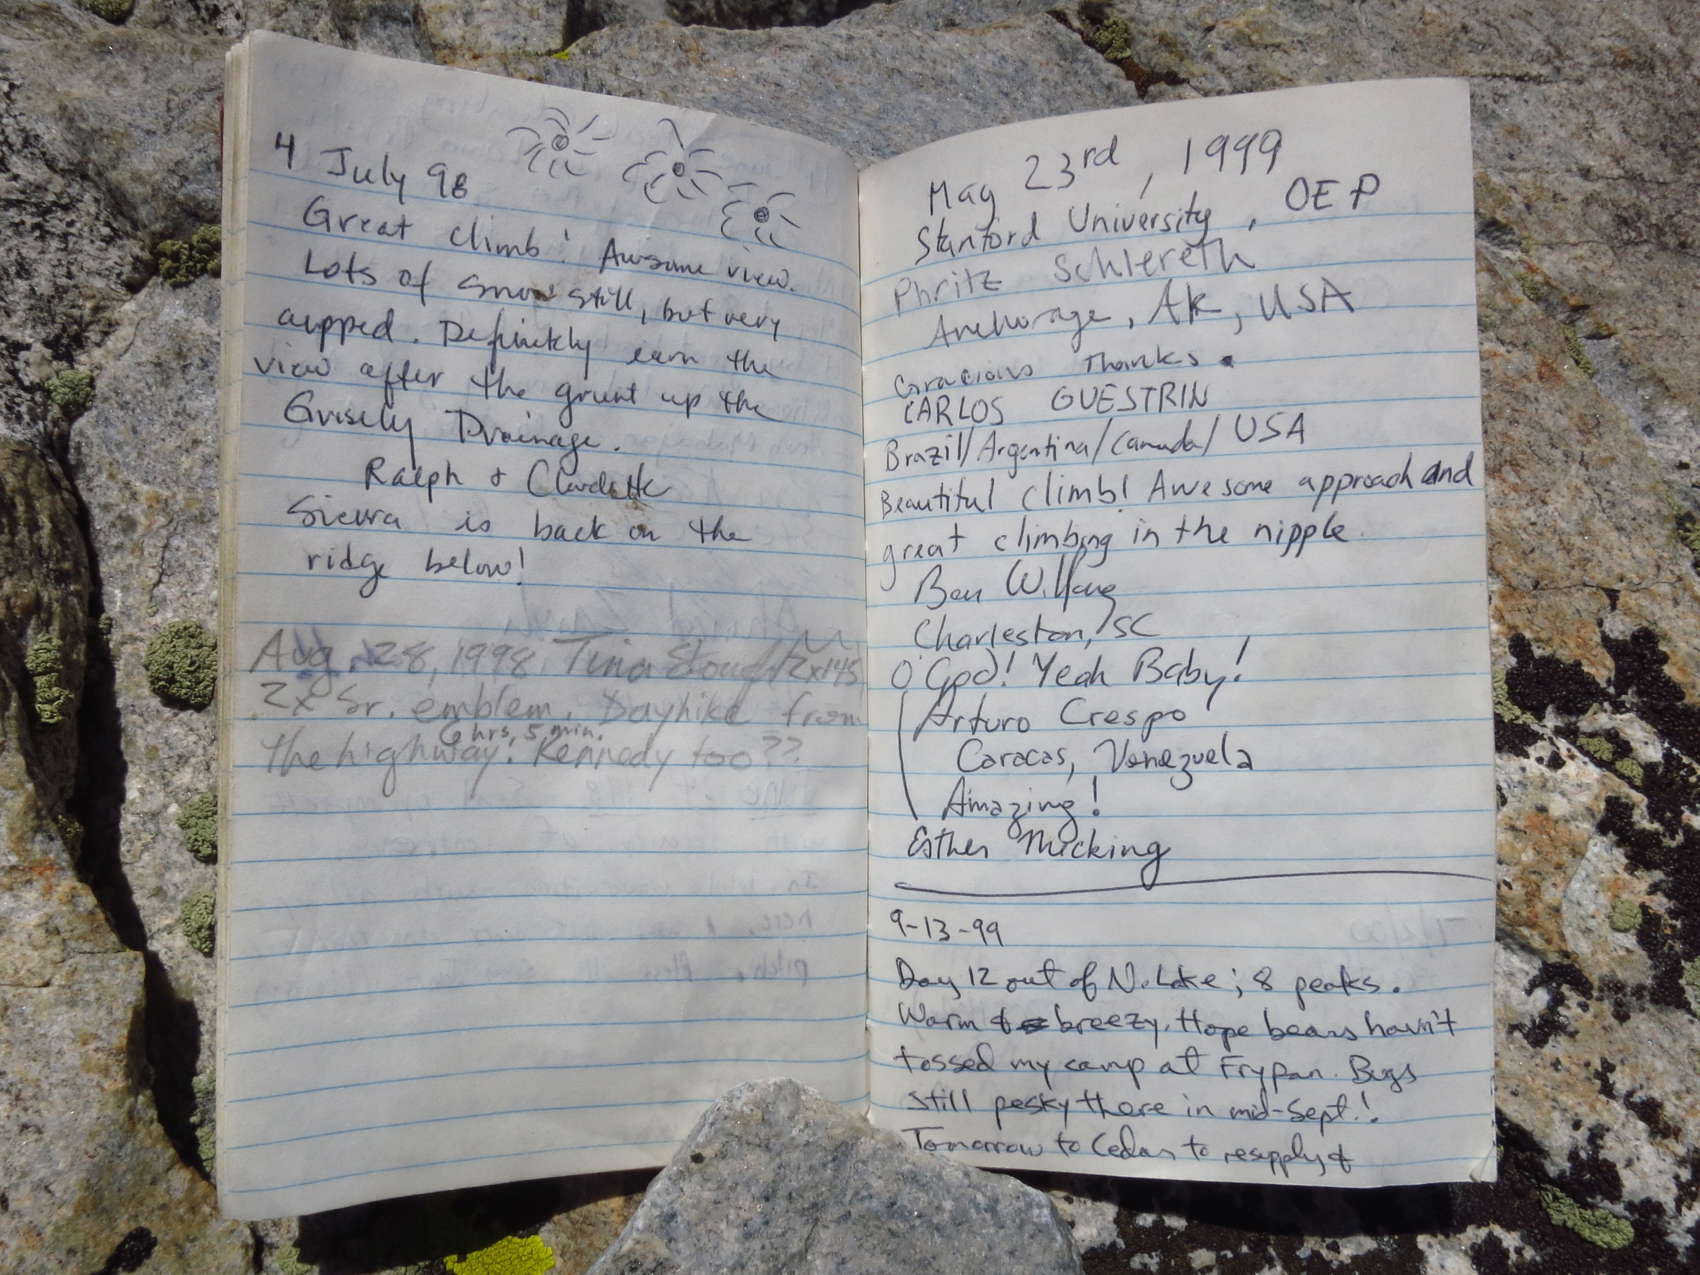 4 July 98
Great climb! Awesome view.
Lots of snow still, but very
cupped. Definitely earn the
view after the grunt up the
Grisely Drainage.
Ralph & Claudette
Sierra is back on the
ridge below!
Aug. 28, 1998 Tina Stough 12x14s,
2x Sr. emblem. Dayhike from
6 hrs, 5 min.
the highway. Kennedy too??
May 23rd, 1999
Stanford University, OEP
Phritz Schlereth
Anchorage, AK, USA
Thanks.
CARLOS GUESTRIN
Brazil/Argentina/Canada/USA
Beautiful climb! Awesome approach and
great climbing in the nipple.
Ben
Charleston, SC
O'God! Yeah Baby!
Arturo Crespo
Caracas, Venezuela
Amazing!
Esther
9-13-99
Day 12 out of N. Lake; 8 peaks.
Warm & breezy. Hope bears havn't
tossed my camp at Frypan. Bugs
still pesky there in mid-Sept.!
Tomorrow to Cedar to resupply &